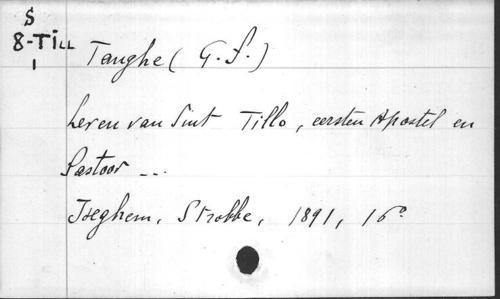 S
8-TILL
1
Tanghe (G. F.)
Leven van Sint Tillo, eersten Apostel en
Pastoor ...
Iseghem, Strobbe, 1891, 16°